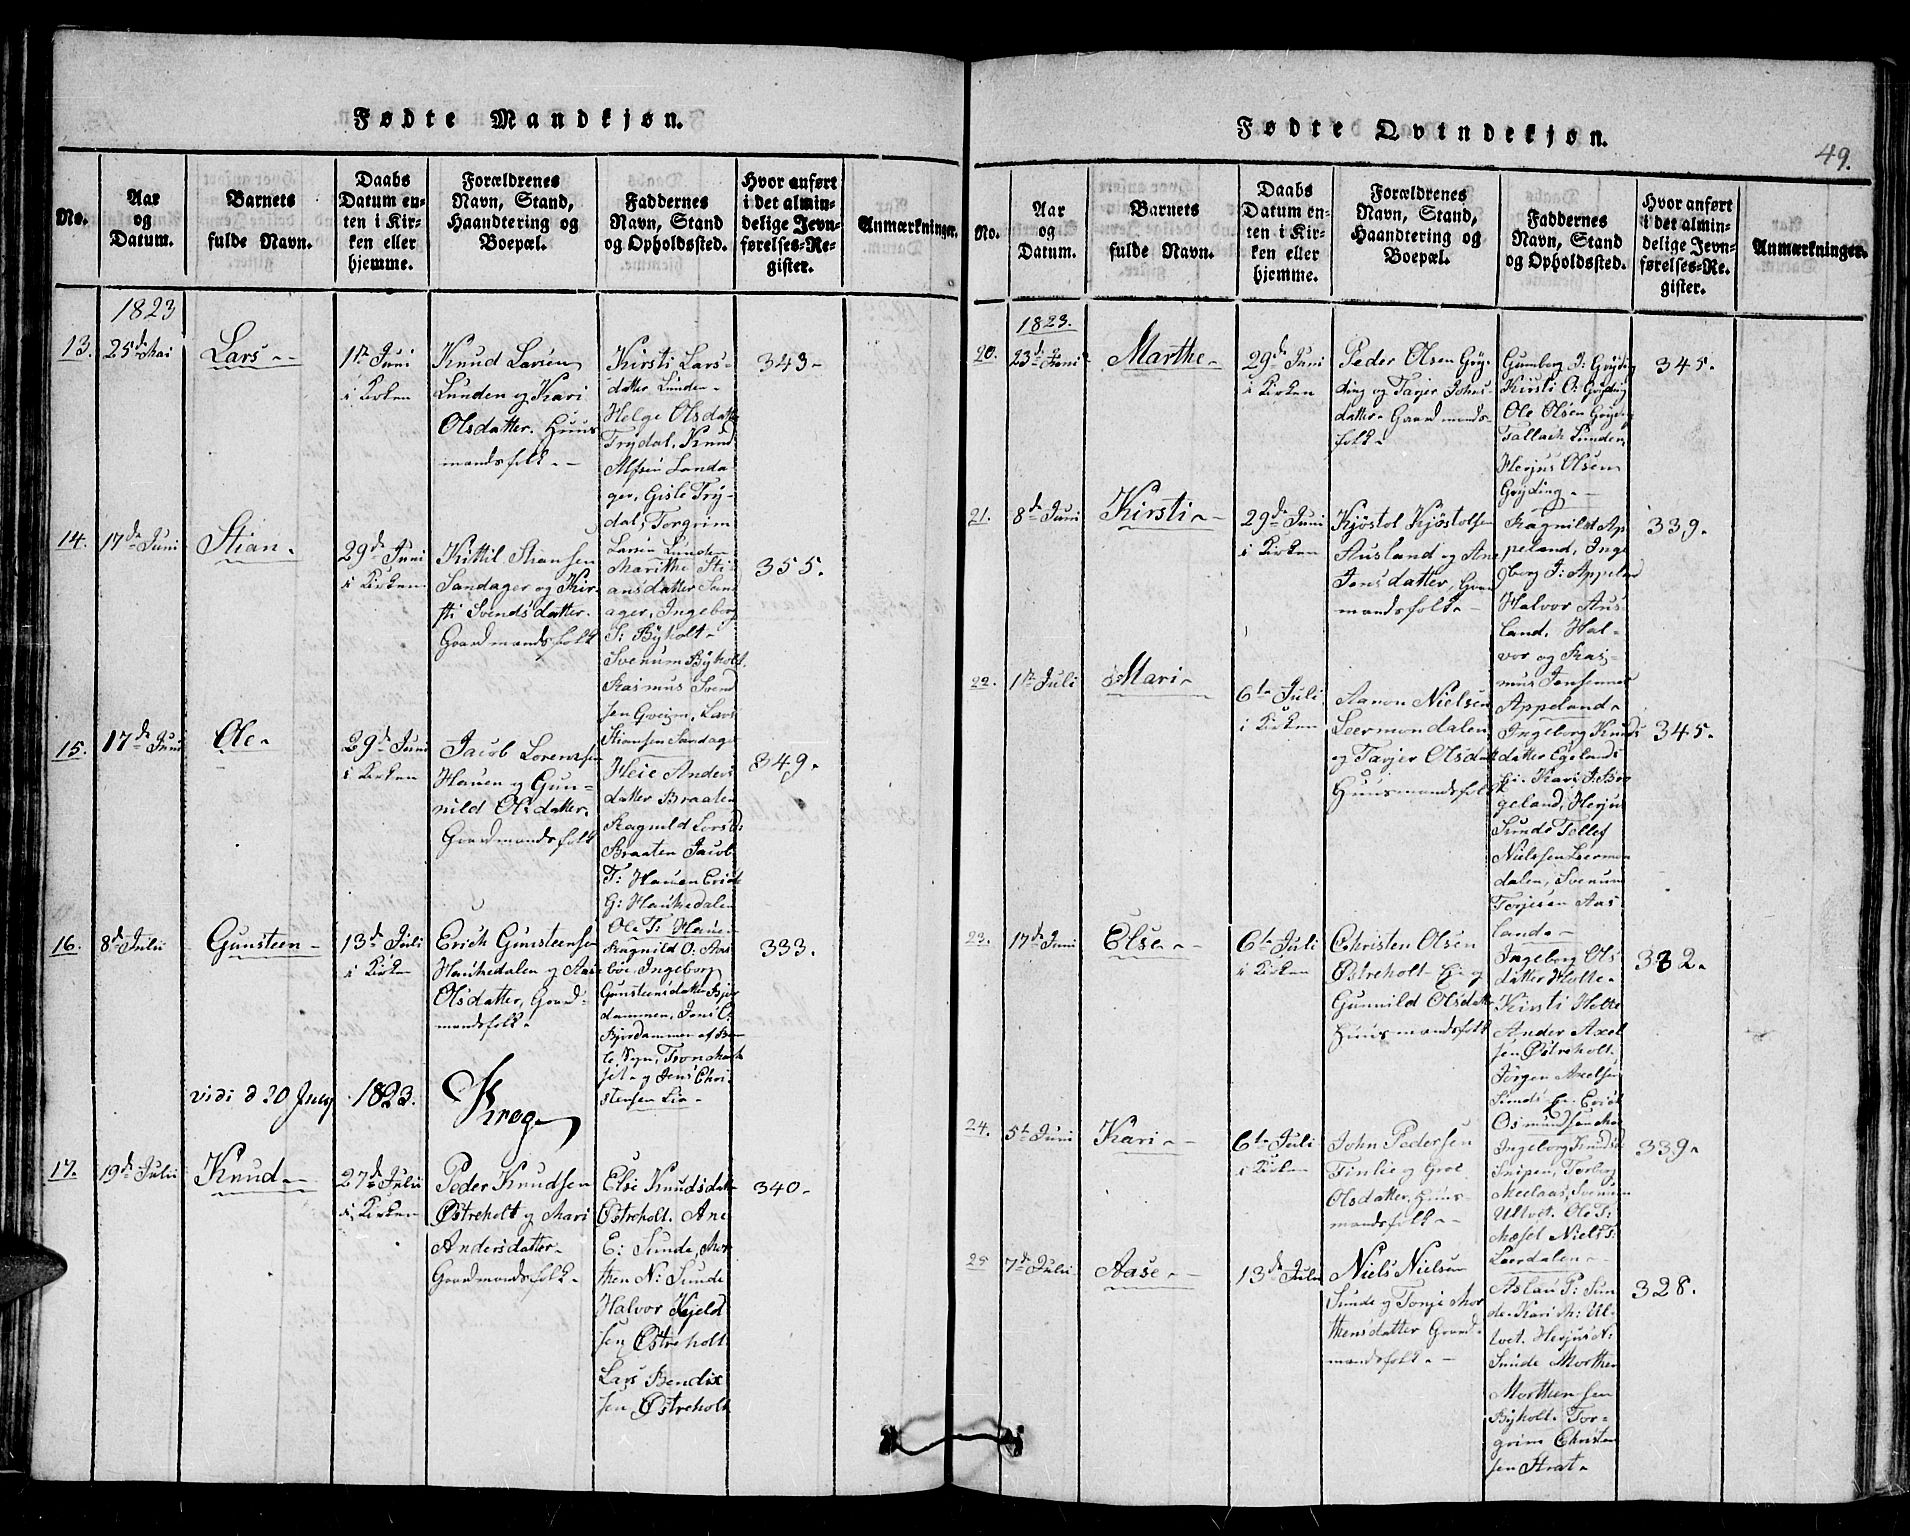 Fødte Mandkjøn.
No.
Aar
og
Datum.
Barnets
fulde Navn.
Daabs
Datum en-
ten i Kir-
ken eller
hjemme.
Forældrenes
Navn, Stand,
Haandtering og
Boepæl.
Faddernes
Navn, Stand
og Opholdssted.
Hvor anført
i det almin-
delige Jevn-
førelses-Re-
gister.
Anmærkninger.
1823
13.
25de Mai
Lars
1ste Juni
i Kirken
Knud Larsen
Lunden og Kari
Olsdatter. Huus
mandsfolk.
Kirsti Lars-
datter Lunden
Helge Olsdatter
Trydal, Knud
Alfsen Landa
ger, Gisle Try-
dal, Torgrim
Larsen Lunden
343
14.
17de Juni
Stian
29de Juni
i Kirken
Kittil Stiansen
Sandager og Kir-
sti Svendsdatter.
Gaardmandsfolk
Marithe Sti-
ansdatter Sand
ager, Ingeborg
S: Byholt
Svenum Byholt
Rasmus Svend
sen Gveim, Lars
Stiansen Sandager
355.
15.
17de Juni
Ole
29de Juni
i Kirken
Jacob Lorenssen
Hauen og Gun-
nild Olsdatter.
Gaardmandsfolk
Heie Anders
datter Braaten
Ragnild Lorsd:
Braaten Jacob
T: Hauen Erich
G: Haukedalen
Ole T: Haue
349.
16.
8de Julii
Gunsteen
13de Juli
i Kirken
Erich Gunsteensen
Haukedalen og Aase
Olsdatter, Gaard-
mandsfolk.
Ragnild O: Aas
böe, Ingeborg
Gunsteensdatter Bjor
dammen, Jens O:
Bjordammen af Bam
le, Sogn, Tron
set og Jens Chri-
stensen Lia
333.
vidi d 20 July 1823.
Krog
17.
19de Julii
Knud
27de Julii
i Kirken
Peder Knudsen
Østreholt og Mari
Andersdatter
Gaardmandsfolk
Else Knudsdatter
Østreholt. Ane
E: Sunde, Mor
then N: Sunde
Halvor Kjeld
sen Østreholt
Lars Bendix
sen Østreholt
340
Fødte Qvindekjøn.
49.
No.
Aar
og
Datum.
Barnets
fulde Navn.
Daabs
Datum en-
ten i Kir-
ken eller
hjemme.
Forældrenes
Navn, Stand,
Haandtering og
Boepæl.
Faddernes
Navn, Stand
og Opholdssted.
Hvor anført
i det almin-
delige Jevn-
førelses-Re-
gister.
Anmærkninger.
1823.
20.
23de Juni
Marthe
29de Juni
i Kirken
Peder Olsen Gry
ding og Tarjer Johns
datter. Gaardmands
folk.
Gunborg J: Gryding
Kirsti O: Gryding
Ole Olsen Gryding
Tallach Lunden
Herjus Olsen
Gryding
345.
21.
8de Juni
Kirsti
29de Juni
i Kirken
Kjöstol Kjöstolsen
Ausland og Ane
Jonsdatter, Gaard
mandsfolk
Ragnild Ap
peland, Inge
borg J: Appeland
Halvor Aus-
land. Hal-
vor og Ras-
mus Jonsenner
Appeland
339.
22.
1ste Juli
Mari
6te Juli
i Kirken
Aanon Nielsen
Leermondalen
og Tarjer Olsdatter
Huusmandsfolk
Ingeborg Knuds
datter Egelands
Ei. Kari J: Bor
geland, Herjus
Sunde Tellef
Nielssen Leermon
dalen, Svenum
Torjesen Aas
land
345.
23.
17de Juni
Else
6te Juli
i Kirken
Christen Olsen
Østreholt Ei og
Gunnild Olsdatter
Huusmandsfolk
Ingeborg Ols
datter Holte
Kirsti Holte
Ander Axel
sen Østreholt
Jörgen Axelsen
Sunds Ei. Erich
Osmundsen
332.
24.
5te Juni
Kari
6te Juli
i Kirken
John Pedersen
Finlie og Groe
Olsdatter, Huus-
mandsfolk
Ingeborg Knudsd
Snipen, Torborg
Meelaas, Svenum
Ultvet. Ole T:
Mæsel Niels T:
Leerdalen
339.
25
7de Julii
Aase
13de Julii
Niels Nielsen
Sunde og Tonje Mor
thensdatter Gaard-
mandsfolk.
Aslau P: Sun
de. Kari M: Ul-
tvet. Herjus N:
Sunde Morthen
Morthensen
Byholt. Tor-
grim Christen
sen Strat
328.